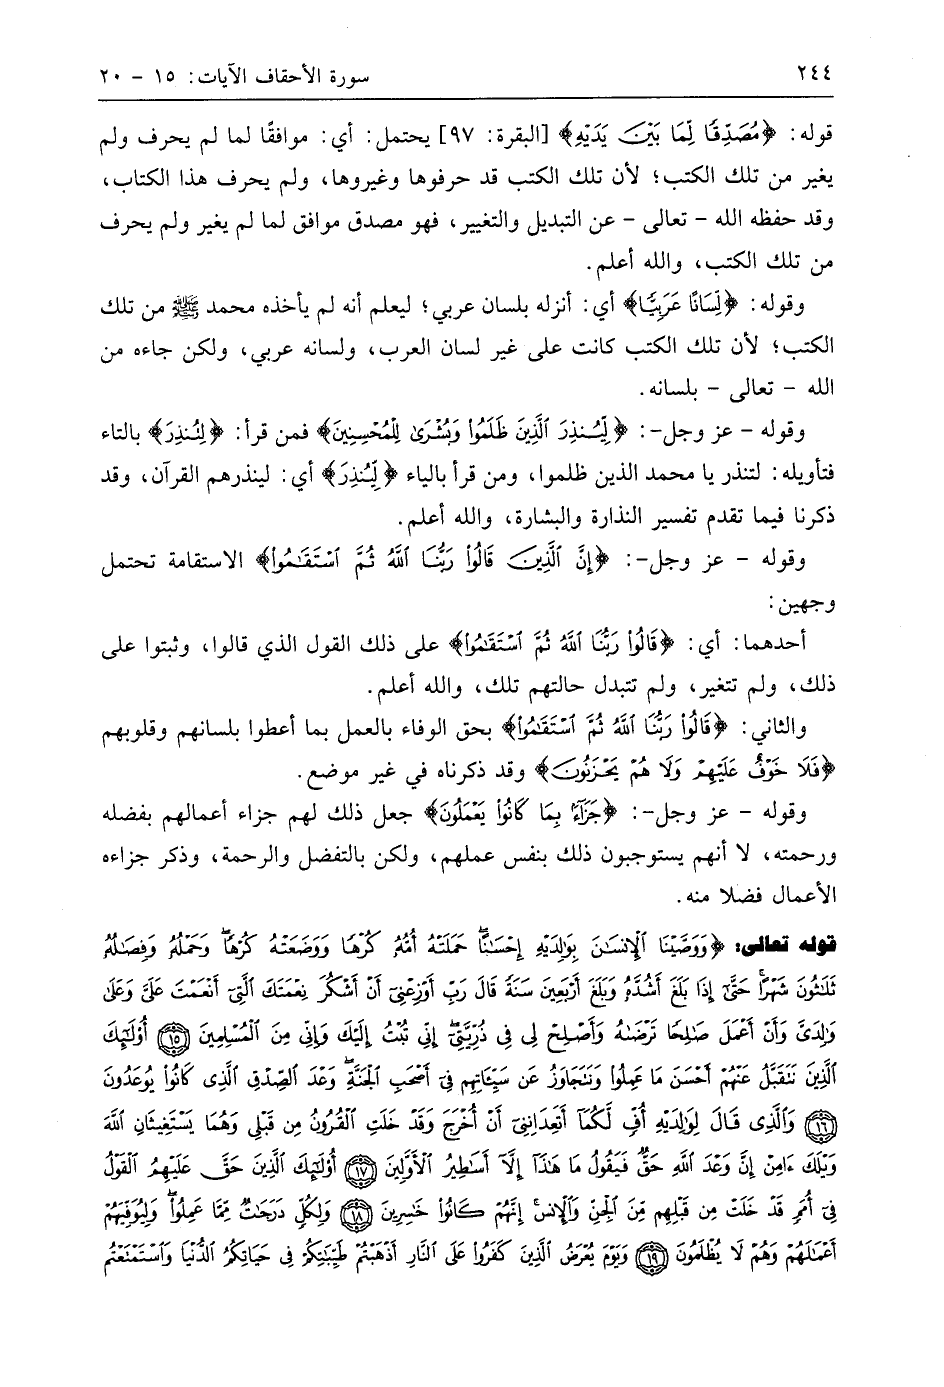 ٢٤٤ سورة الأحقاف الآيات: ١٥ - ٢٠
قوله: ﴿مُصَدِّقًا لِّمَا بَيْنَ يَدَيْهِ﴾ [البقرة: ٩٧] يحتمل: أي: موافقًا لما لم يحرف ولم
يغير من تلك الكتب؛ لأن تلك الكتب قد حرفوها وغيروها، ولم يحرف هذا الكتاب،
وقد حفظه الله - تعالى - عن التبديل والتغيير، فهو مصدق موافق لما لم يغير ولم يحرف
من تلك الكتب، والله أعلم.
وقوله: ﴿لِّسَانًا عَرَبِيًّا﴾ أي: أنزله بلسان عربي؛ ليعلم أنه لم يأخذه محمد ﷺ من تلك
الكتب؛ لأن تلك الكتب كانت على غير لسان العرب، ولسانه عربي، ولكن جاءه من
الله - تعالى - بلسانه.
وقوله - عز وجل-: ﴿لِّيُنذِرَ ٱلَّذِينَ ظَلَمُوا۟ وَبُشْرَىٰ لِلْمُحْسِنِينَ﴾ فمن قرأ: ﴿لِتُنذِرَ﴾ بالتاء
فتأويله: لتنذر يا محمد الذين ظلموا، ومن قرأ بالياء ﴿لِّيُنذِرَ﴾ أي: لينذرهم القرآن، وقد
ذكرنا فيما تقدم تفسير النذارة والبشارة، والله أعلم.
وقوله - عز وجل-: ﴿إِنَّ ٱلَّذِينَ قَالُوا۟ رَبُّنَا ٱللَّهُ ثُمَّ ٱسْتَقَـٰمُوا۟﴾ الاستقامة تحتمل
وجهين:
أحدهما: أي: ﴿قَالُوا۟ رَبُّنَا ٱللَّهُ ثُمَّ ٱسْتَقَـٰمُوا۟﴾ على ذلك القول الذي قالوا، وثبتوا على
ذلك، ولم تتغير، ولم تتبدل حالتهم تلك، والله أعلم.
والثاني: ﴿قَالُوا۟ رَبُّنَا ٱللَّهُ ثُمَّ ٱسْتَقَـٰمُوا۟﴾ بحق الوفاء بالعمل بما أعطوا بلسانهم وقلوبهم
﴿فَلَا خَوْفٌ عَلَيْهِمْ وَلَا هُمْ يَحْزَنُونَ﴾ وقد ذكرناه في غير موضع.
وقوله - عز وجل-: ﴿جَزَآءًۢ بِمَا كَانُوا۟ يَعْمَلُونَ﴾ جعل ذلك لهم جزاء أعمالهم بفضله
ورحمته، لا أنهم يستوجبون ذلك بنفس عملهم، ولكن بالتفضل والرحمة، وذكر جزاءه
الأعمال فضلا منه.
قوله تعالى: ﴿وَوَصَّيْنَا ٱلْإِنسَـٰنَ بِوَٰلِدَيْهِ إِحْسَـٰنًا ۖ حَمَلَتْهُ أُمُّهُۥ كُرْهًا وَوَضَعَتْهُ كُرْهًا ۖ وَحَمْلُهُۥ وَفِصَـٰلُهُۥ
ثَلَـٰثُونَ شَهْرًا ۚ حَتَّىٰٓ إِذَا بَلَغَ أَشُدَّهُۥ وَبَلَغَ أَرْبَعِينَ سَنَةً قَالَ رَبِّ أَوْزِعْنِىٓ أَنْ أَشْكُرَ نِعْمَتَكَ ٱلَّتِىٓ أَنْعَمْتَ عَلَىَّ وَعَلَىٰ
وَٰلِدَىَّ وَأَنْ أَعْمَلَ صَـٰلِحًا تَرْضَىٰهُ وَأَصْلِحْ لِى فِى ذُرِّيَّتِىٓ ۖ إِنِّى تُبْتُ إِلَيْكَ وَإِنِّى مِنَ ٱلْمُسْلِمِينَ ١٥ أُو۟لَـٰٓئِكَ
ٱلَّذِينَ نَتَقَبَّلُ عَنْهُمْ أَحْسَنَ مَا عَمِلُوا۟ وَنَتَجَاوَزُ عَن سَيِّـَٔاتِهِمْ فِىٓ أَصْحَـٰبِ ٱلْجَنَّةِ ۖ وَعْدَ ٱلصِّدْقِ ٱلَّذِى كَانُوا۟ يُوعَدُونَ
١٦ وَٱلَّذِى قَالَ لِوَٰلِدَيْهِ أُفٍّ لَّكُمَآ أَتَعِدَانِنِىٓ أَنْ أُخْرَجَ وَقَدْ خَلَتِ ٱلْقُرُونُ مِن قَبْلِى وَهُمَا يَسْتَغِيثَانِ ٱللَّهَ
وَيْلَكَ ءَامِنْ إِنَّ وَعْدَ ٱللَّهِ حَقٌّ فَيَقُولُ مَا هَـٰذَآ إِلَّآ أَسَـٰطِيرُ ٱلْأَوَّلِينَ ١٧ أُو۟لَـٰٓئِكَ ٱلَّذِينَ حَقَّ عَلَيْهِمُ ٱلْقَوْلُ
فِىٓ أُمَمٍ قَدْ خَلَتْ مِن قَبْلِهِم مِّنَ ٱلْجِنِّ وَٱلْإِنسِ ۖ إِنَّهُمْ كَانُوا۟ خَـٰسِرِينَ ١٨ وَلِكُلٍّ دَرَجَـٰتٌ مِّمَّا عَمِلُوا۟ ۖ وَلِيُوَفِّيَهُمْ
أَعْمَـٰلَهُمْ وَهُمْ لَا يُظْلَمُونَ ١٩ وَيَوْمَ يُعْرَضُ ٱلَّذِينَ كَفَرُوا۟ عَلَى ٱلنَّارِ أَذْهَبْتُمْ طَيِّبَـٰتِكُمْ فِى حَيَاتِكُمُ ٱلدُّنْيَا وَٱسْتَمْتَعْتُم